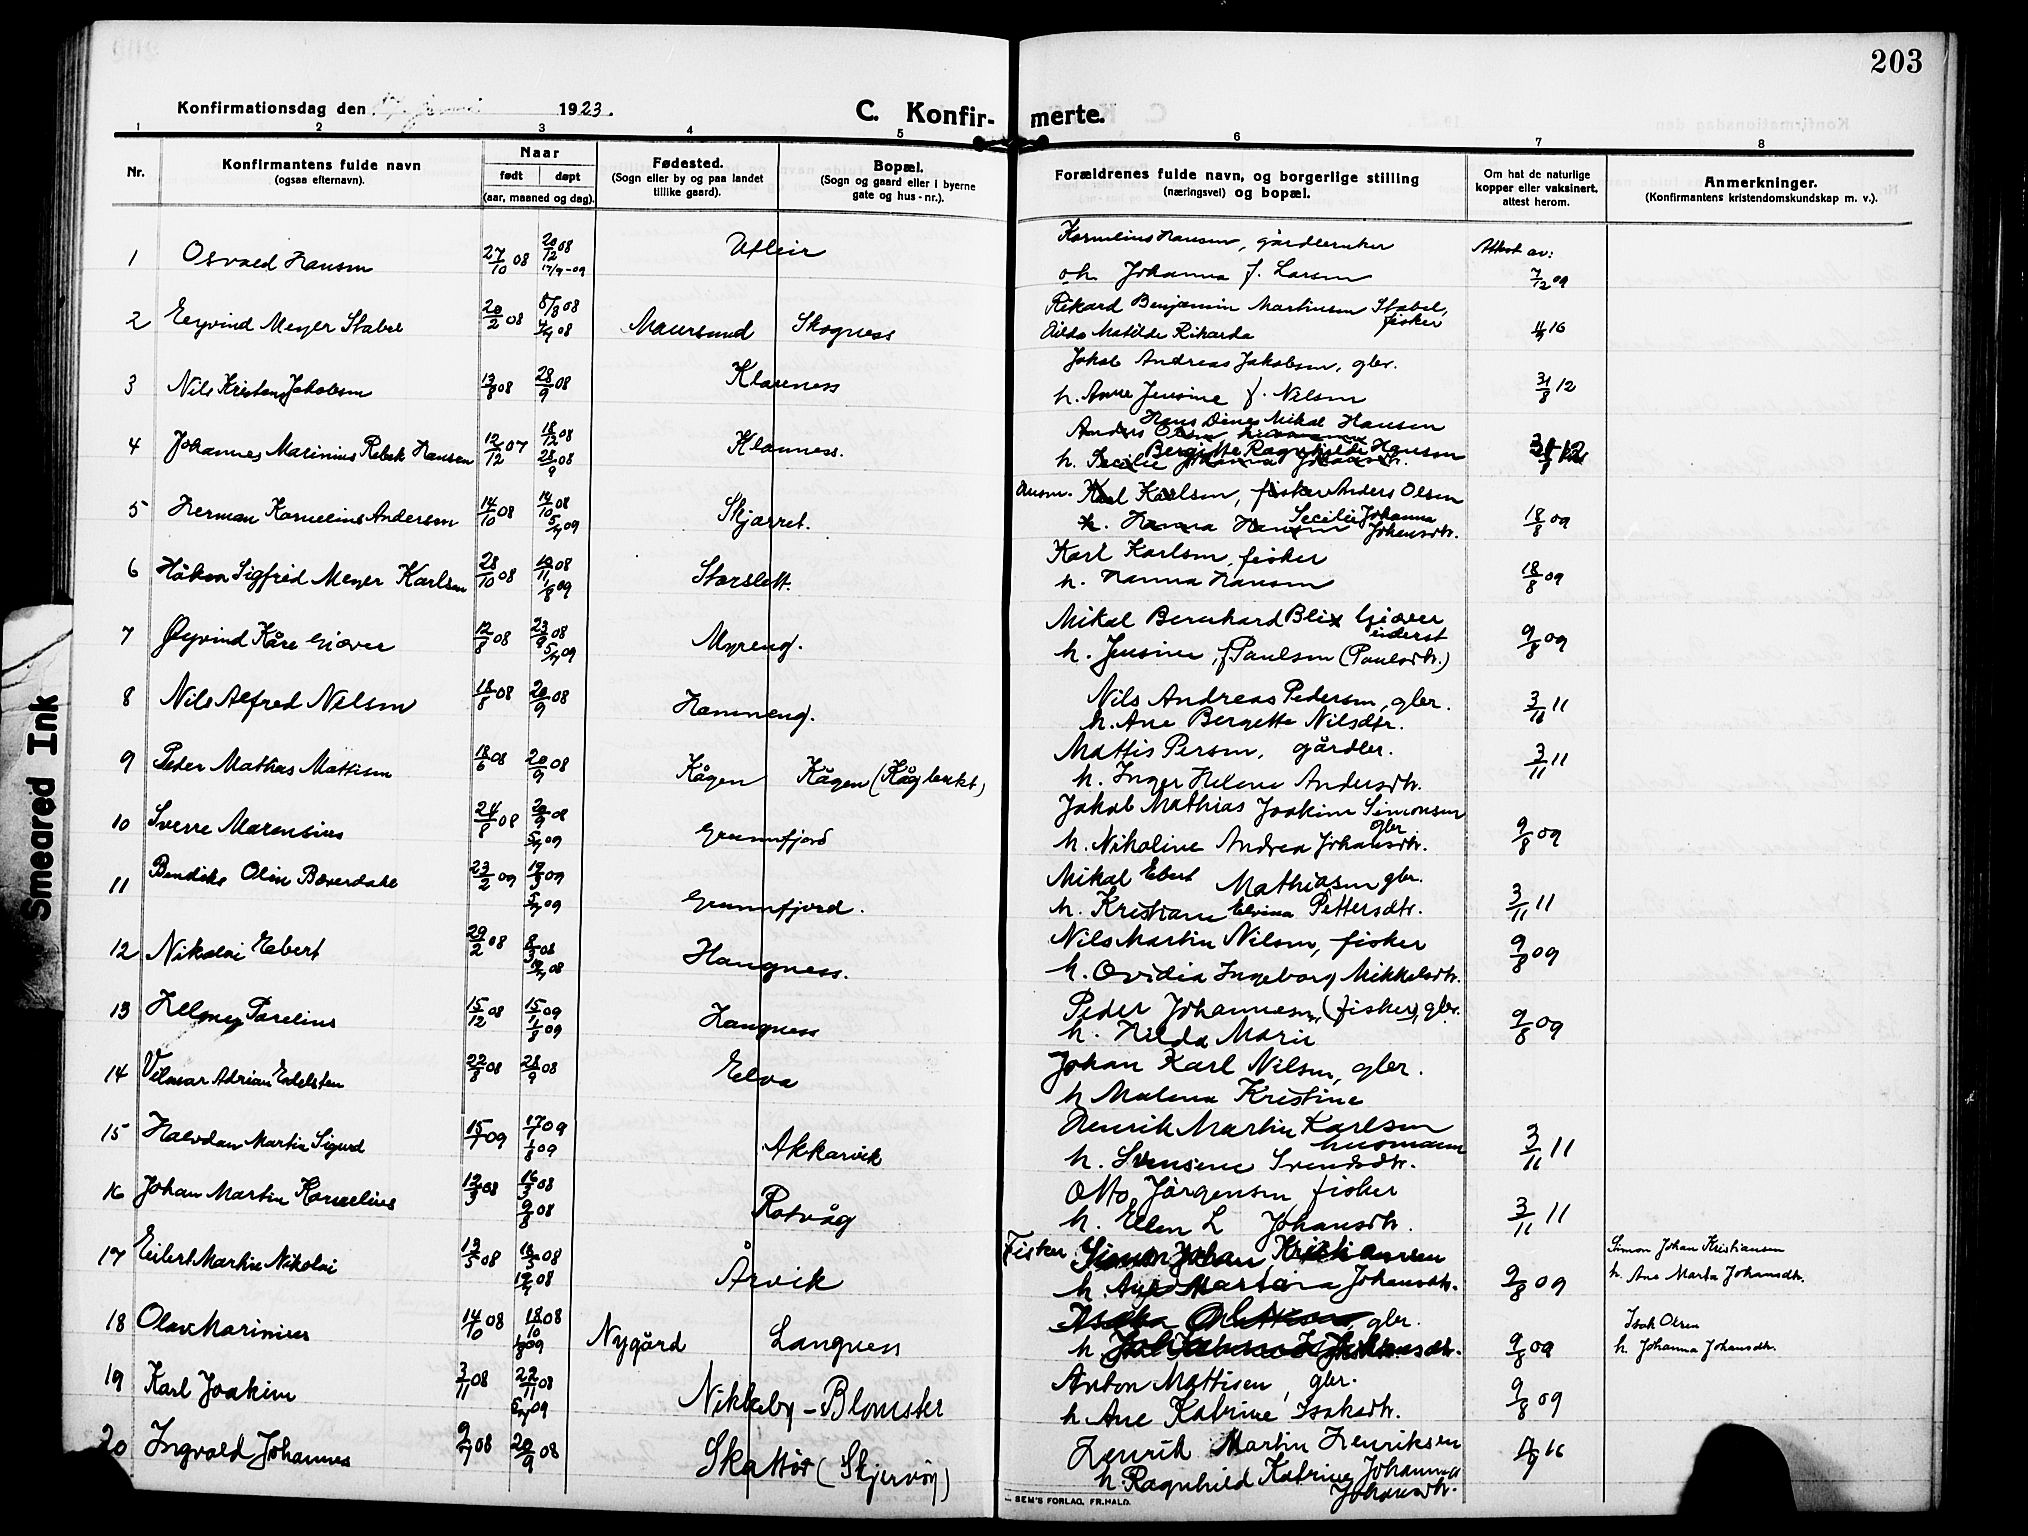 203
Konfirmationsdag den 1923.
C. Konfir- merte.
1 2 3 4 5 6 7 8
Nr.
Konfirmantens fulde navn
(ogsaa efternavn).
Naar
født døpt
(aar, maaned og dag).
Fødested.
(Sogn eller by og paa landet
tillike gaard).
Bopæl.
(Sogn og gaard eller i byerne
gate og hus-nr.).
Forældrenes fulde navn, og borgerlige stilling
(næringsvei) og bopæl.
Om hat de naturlige
kopper eller vaksinert.
attest herom.
Anmerkninger.
(Konfirmantens kristendomskundskap m. v.).
1 Osvald Hansen 27/10 08 20/12 08 17/7-09 Utleir Kornelius Hansen, gårdbruker Attest av:
oh. Johanna f. Larsen 7/12 09
2 Eyvind Meyer Stabel 20/2 08 5/8 08 Maursund Skogness Rikard Benjamin Martinsen Stabel,
fisker
Hilda Matilde Rikarda 16
3 Nils Kristen Jakobsen 13/8 08 28/9 08 Klauness Jakob Andreas Jakobsen, gbr.
h. Anne Jensine f. Nilsen 31/8 12
4 Johannes Marinius Rebek Hansen 12/12 07 18/12 08 28/9 08 Klauness. Hans Dines Mikal Hansen
Anders Olsen
Bergitte Ragnhilde Hansen
h. Secilie Johanna Johansdtr.
5 Herman Kornelius Andersen 14/10 08 14/10 08 5/7 09 Skjærret. Husm. Karl Karlsen, fisker Anders Olsen
Secilie Johanna
h. Hanna Hansen Johansdtr. 18/8 09
6 Håkon Sigfred Meyer Karlsen 28/10 08 10/11 08 1/8 09 Storslett. Karl Karlsen, fisker
h. Hanna Hansen 18/8 09
7 Øyvind Kåre Giæver 12/8 08 23/9 08 5/7 09 Myreng. Mikal Bernhard Blix Giæver
inderst
h. Jensine, f. Paulsen (Paulsdtr.) 9/8 09
8 Nils Alfred Nilsen 18/8 08 20/9 08 Hamneng. Nils Andreas Pedersen, gbr. 3/11 11
h. Ane Bergette Nilsdtr.
9 Peder Mathias Mattisen 18/6 08 20/9 08 Kågen Kågen (Kåglerkt) Mattis Persen, gårdbr. 3/11 11
h. Inger Helene Andersdtr.
10 Sverre Marensius 24/8 08 20/9 08 5/7 09 Grunnfjord Jakob Mathias Joakim Simonsen
gbr.
h. Nikoline Andrea Johansdtr. 9/8 09
11 Bendiks Olin Bæverdahl 23/2 09 19/3 09 5/7 09 Grunnfjord. Mikal Ebert Mathiasen gbr.
h. Kristiane Elvina Pettersdtr. 3/11 11
12 Nikolai Edbert 29/2 08 8/3 08 12/7 08 Haugness. Nils Martin Nilsen, fisker 9/8 09
h. Ovidia Ingeborg Mikkelsdtr.
13 Helmer Parelius 15/12 08 15/1 09 1/8 09 Langness Peder Johannesen (fisker), gbr.
h. Hilda Marie 9/8 09
14 Vilmar Adrian Edelsten 22/8 08 28/9 08 Elva Johan Karl Nilsen, gbr.
h Malena Kristine
15 Halvdan Martin Sigurd 15/1 09 17/1 09 1/8 09 Akkarvik Henrik Martin Karlsen
husmann
h. Svensine Svendsdtr. 3/11 11
16 Johan Martin Kornelius 12/3 08 16/3 08 9/8 08 Rotvåg Otto Jørgensen fisker
h. Ellen L Johansdtr. 3/11 11
17 Eilert Martin Nikolai 13/5 08 18/5 08 12/7 08 Årvik Fisker Simon Johan Kristiansen Simon Johan Kristiansen
h. Ane Martina Johansdtr. 9/8 09 h. Ane Marta Johansdtr.
18 Olav Marinius 14/10 08 18/10 08 1/8 09 Nygård Langness gbr. Isak Olsen
h. Johansdtr. 9/8 09 h. Johanna Johansdtr.
19 Karl Joakim 3/11 08 22/11 08 5/7 09 Nikkeby-Blomster Anton Mattisen, gbr.
h Ane Katrine Isaksdtr. 9/8 09
20 Ingvald Johannes 9/7 08 20/9 08 Skattør (Skjervøy) Henrik Martin Henriksen 16
h Ragnhild Katrine Johanna
Johansdtr.
SEM'S FORLAG, FR.HALD.
Smeared Ink